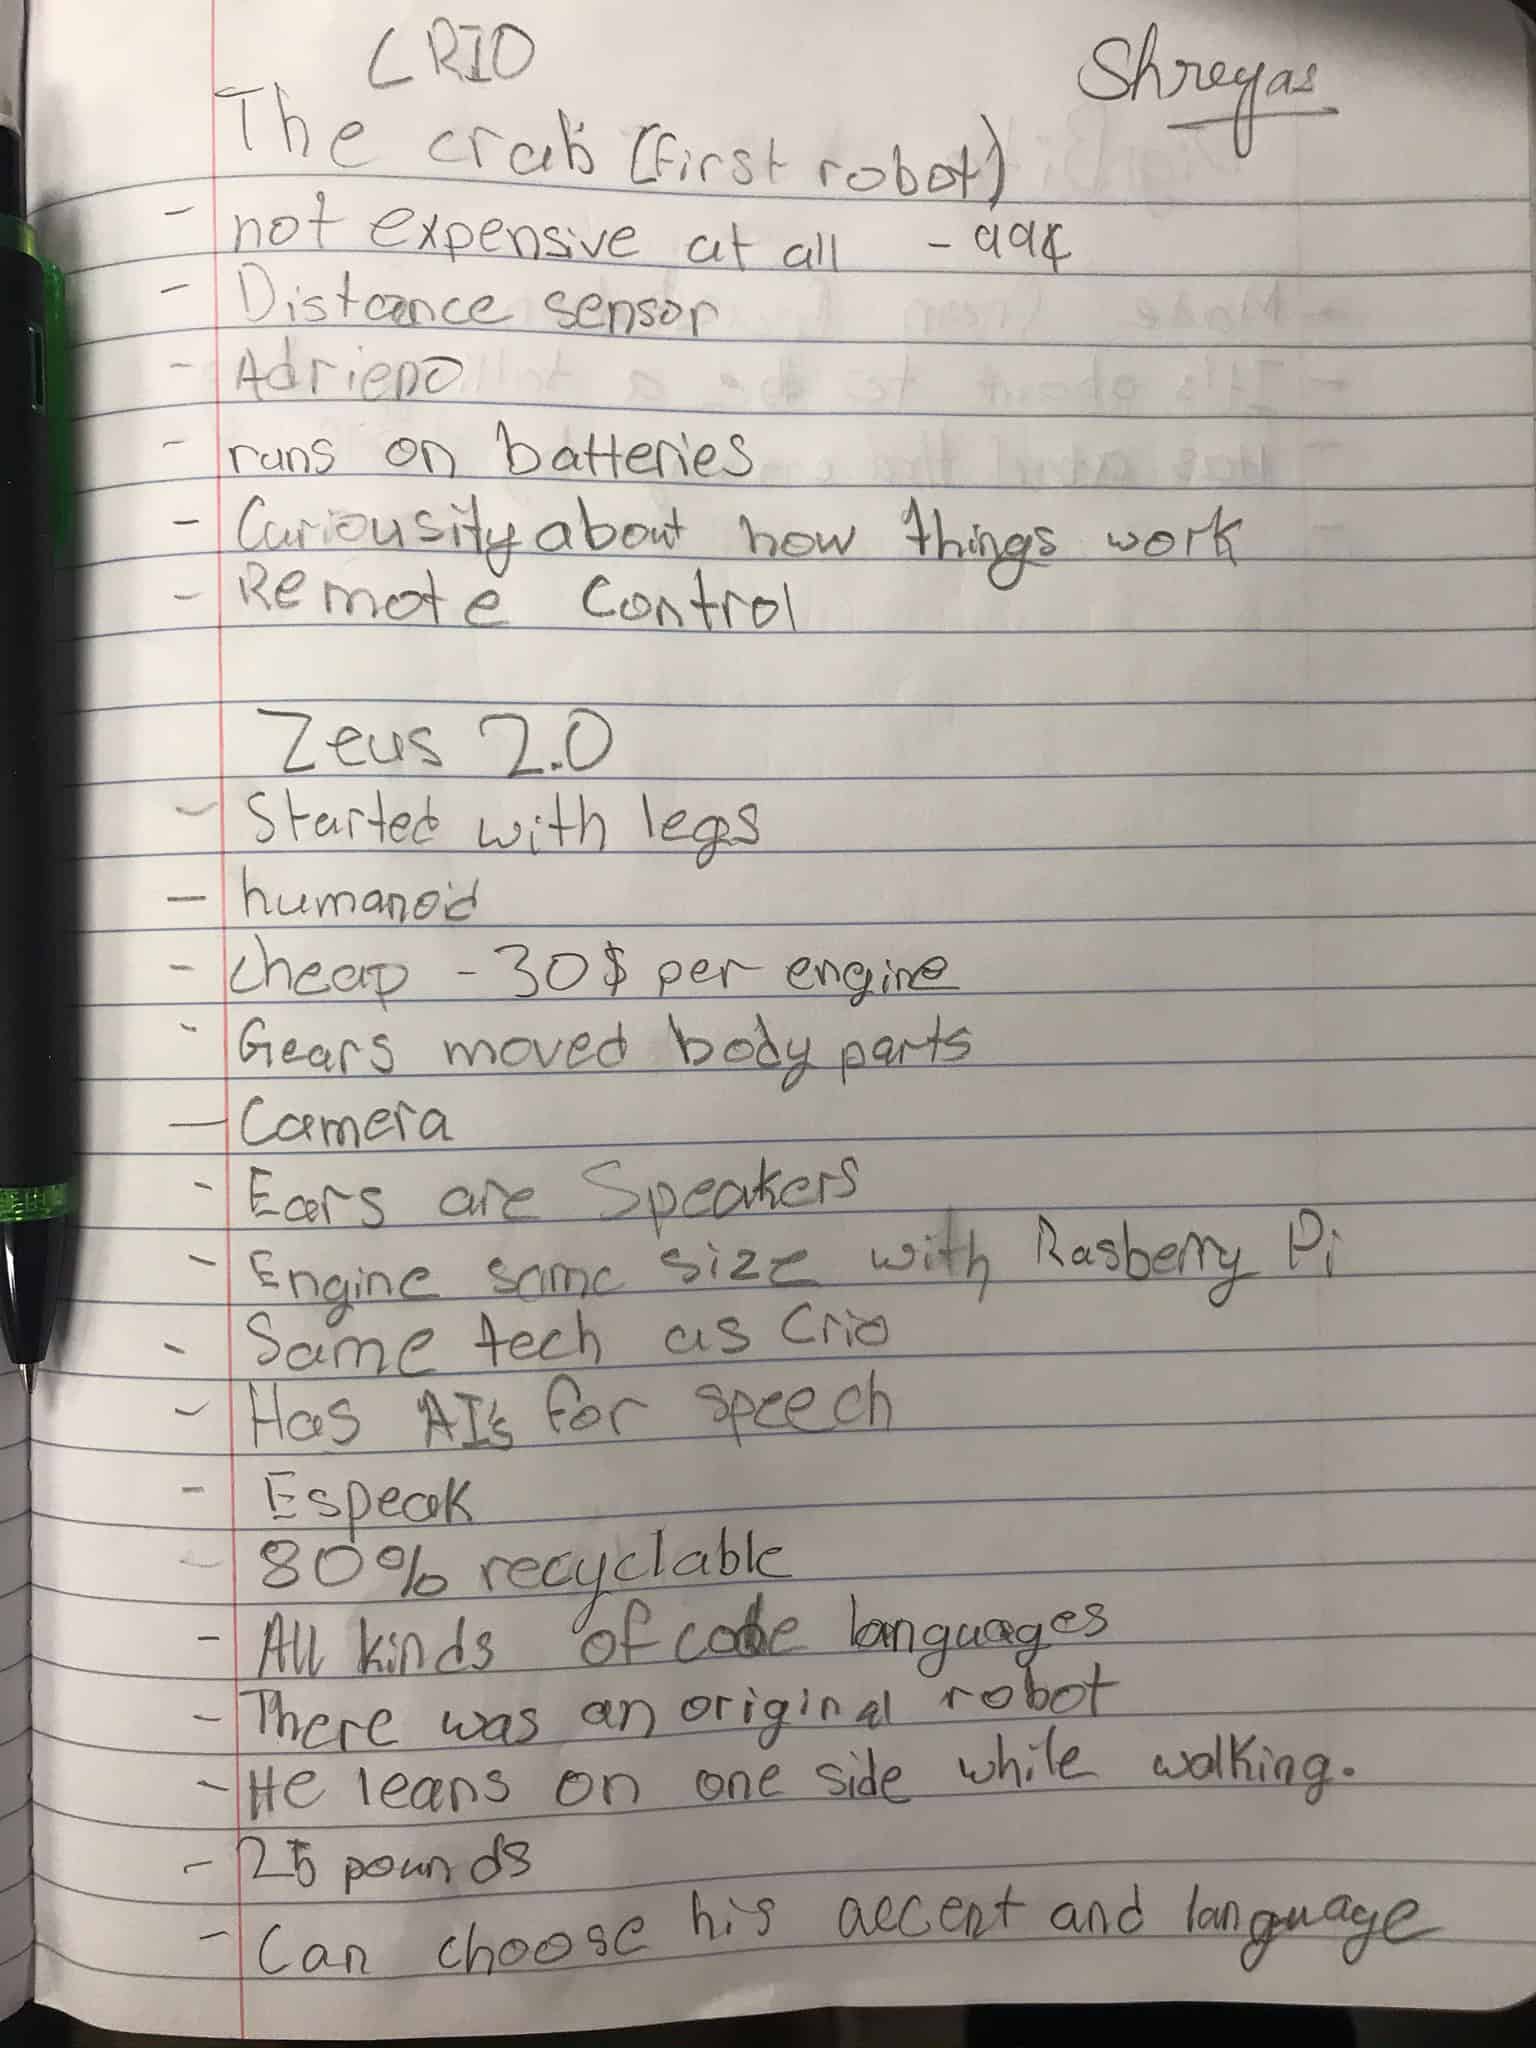 CRIO
Shreyas
The crab (first robot)
- not expensive at all - 99¢
- Distance sensor
- Adrieno
- runs on batteries
- Curiousity about how things work
- Remote Control
Zeus 2.0
- Started with legs
- humanoid
- cheap - 30$ per engine
- Gears moved body parts
- Camera
- Ears are Speakers
- Engine same size with Rasberry Pi
- Same tech as Crio
- Has AI's for speech
- Espeak
- 80% recyclable
- All kinds of code languages
- There was an original robot
- He leans on one side while walking.
- 25 pounds
- Can choose his accent and language